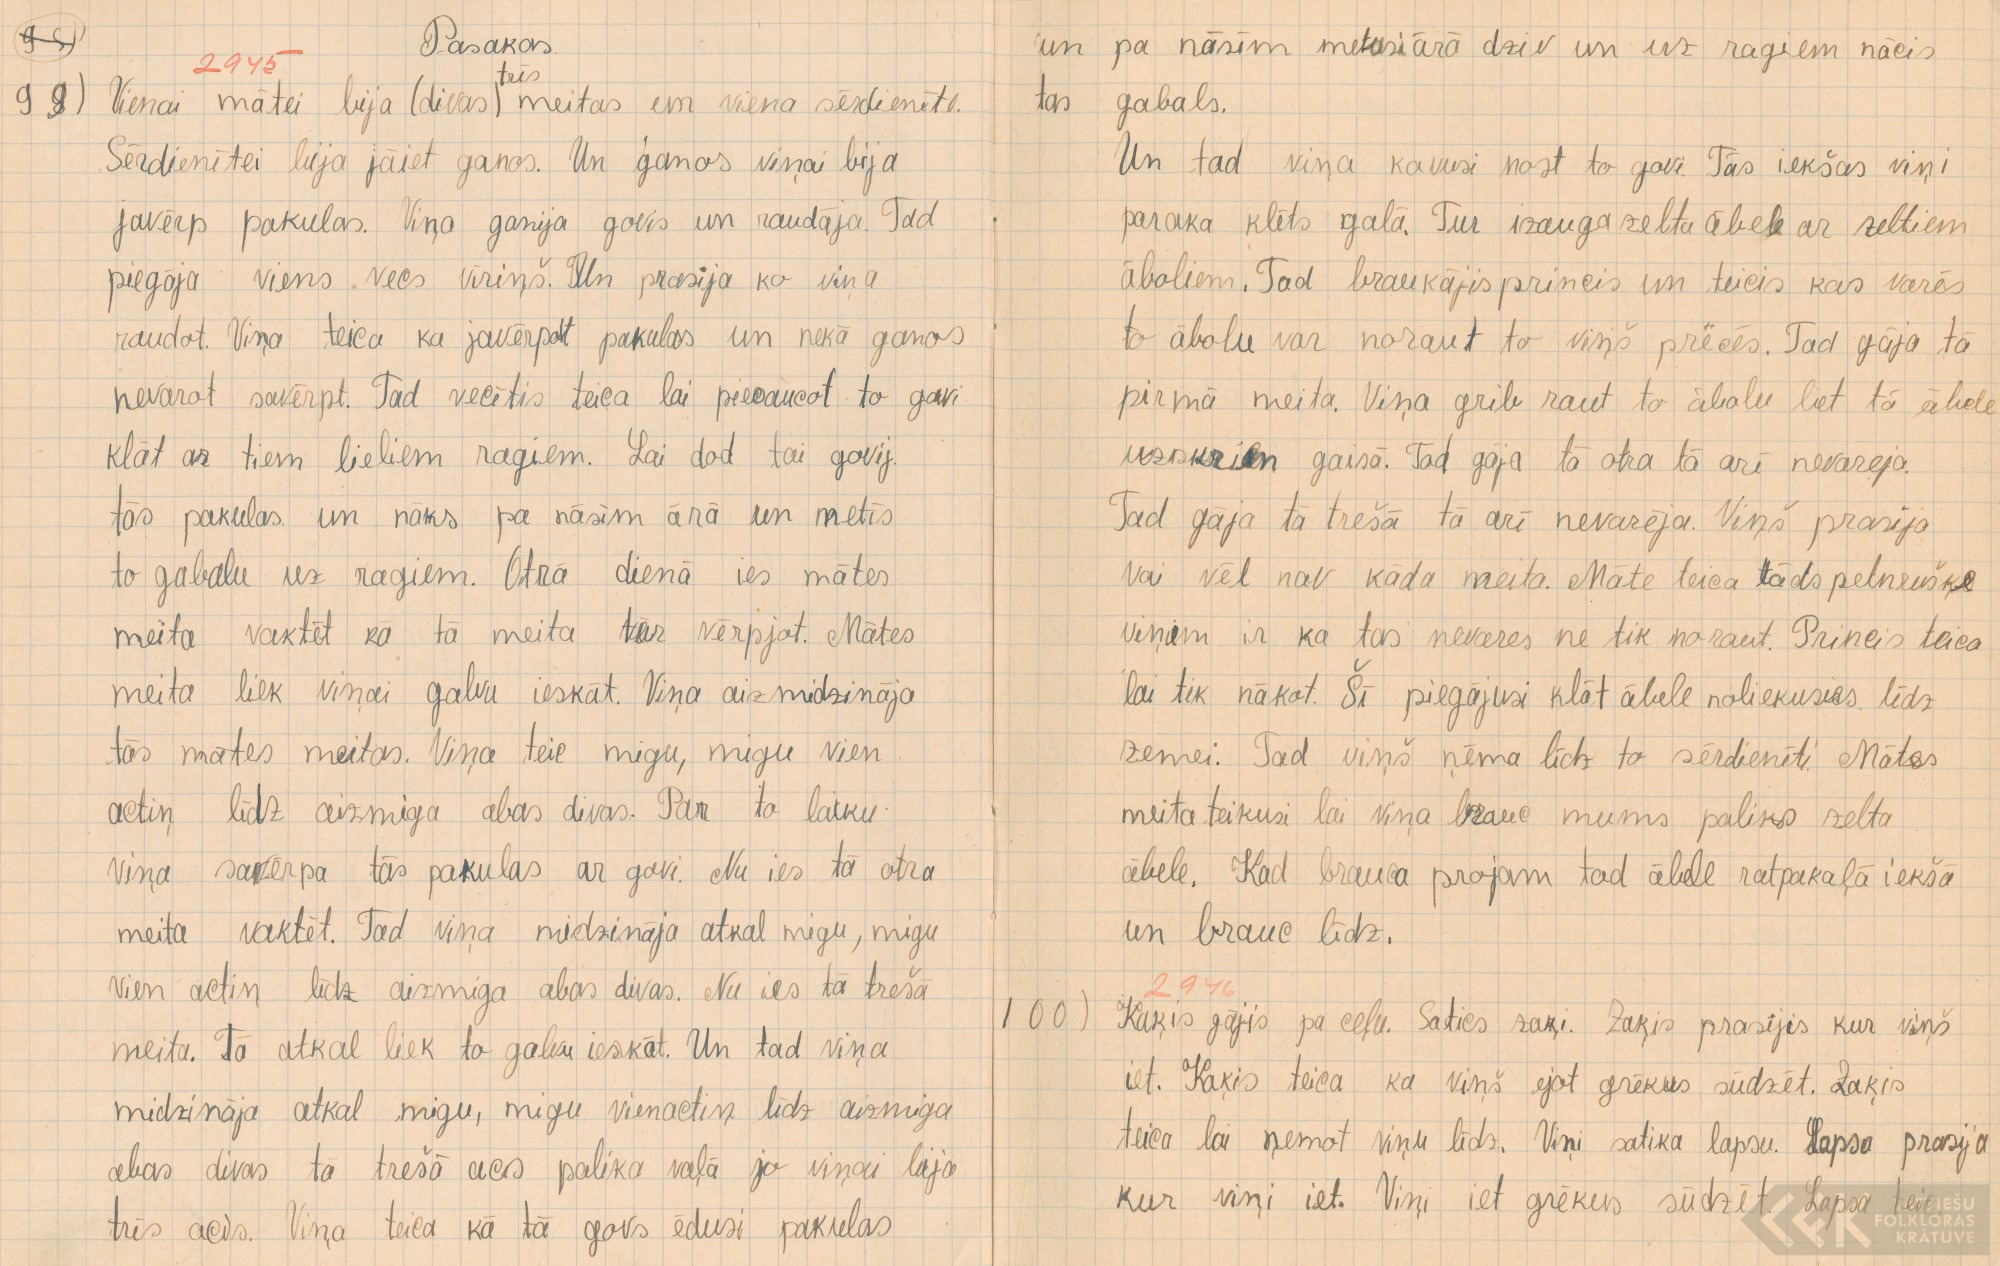 Pasakas
2945
99) Vienai mātei bija (divas) trīs meitas un viena sērdienīte.
Sērdienītei bija jāiet ganos. Un ganos viņai bija
javērp pakulas. Viņa ganija govis un raudāja. Tad
piegāja viens vecs viriņš. Un prasija ko viņa
raudot. Viņa teica ka javērpot pakulas un nekā ganos
nevarot savērpt. Tad vecītis teica lai piesaucot to govi
klāt ar tiem lieliem ragiem. Lai dod tai govij
tās pakulas un nāks pa nāsīm ārā un metīs
to gabalu uz ragiem. Otrā dienā ies mātes
meita vaktēt kā tā meita tur vērpjot. Mātes
meita liek viņai galvu ieskāt. Viņa aizmidzināja
tās mātes meitas. Viņa teic migu, migu vien
actiņ līdz aizmiga abas divas. Par to laiku
viņa savērpa tās pakulas ar govi. Nu ies tā otra
meita vaktēt. Tad viņa midzināja atkal migu, migu
vien actiņ līdz aizmiga abas divas. Nu ies tā trešā
meita. Tā atkal liek to galvu ieskāt. Un tad viņa
midzināja atkal migu, migu vienactiņ līdz aizmiga
abas divas tā trešā acs palika vaļā jo viņai bija
trīs acis. Viņa teica kā tā govs ēdusi pakulas
un pa nāsīm metusi ārā dziv un uz ragiem nācis
tas gabals.
Un tad viņa kavusi nost to govi. Tās iekšas viņi
paraka klēts galā. Tur izauga zelta ābele ar zeltiem
āboliem. Tad braukājis princis un teicis kas varēs
to ābolu var noraut to viņš prēcēs. Tad gāja tā
pirmā meita. Viņa grib raut to ābolu bet tā ābele
uzskrien gaisā. Tad gāja tā otra tā arī nevareja.
Tad gāja tā trešā tā arī nevarēja. Viņš prasija
vai vēl nav kāda meita. Māte teica tāds pelnrušķe
viņim ir ka tas nevares ne tik noraut. Princis teica
lai tik nākot. Šī piegājusi klāt ābele noliekusies līdz
zemei. Tad viņš ņēma līdz to sērdienīti. Mātes
meita teikusi lai viņa brauc mums paliks zelta
ābele. Kad brauca projam tad ābele ratpakaļā iekšā
un brauc līdz.
2946
100) Kaķis gājis pa ceļu. Saticis zaķi. Zaķis prasījis kur viņš
iet. Kaķis teica ka viņš ejot grēkus sūdzēt. Zaķis
teica lai ņemot viņu līdz. Viņi satika lapsu. Lapsa prasija
kur viņi iet. Viņi iet grēkus sūdzēt. Lapsa teic
LATVIEŠU
FOLKLORAS
KRĀTUVE